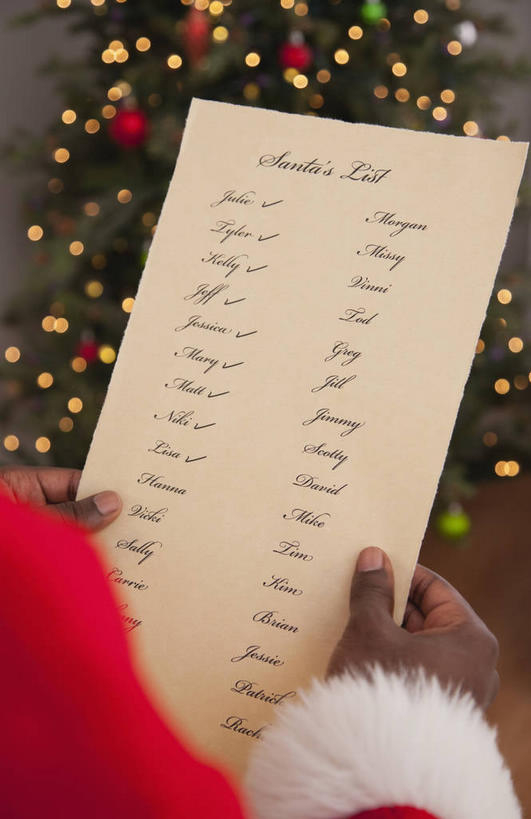 Santa's List
Julie ✓
Tyler ✓
Kelly ✓
Jeff ✓
Jessica ✓
Mary ✓
Matt ✓
Niki ✓
Lisa ✓
Hanna
Vicki
Sally
Carrie
Morgan
Missy
Vinni
Tod
Greg
Jill
Jimmy
Scotty
David
Mike
Tim
Kim
Brian
Jessie
Patrick